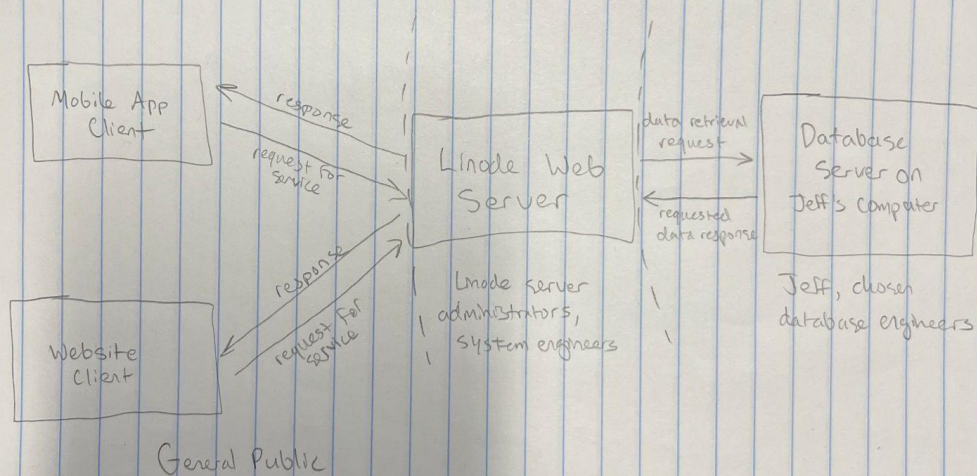 Mobile App
Client
response
request for
service
Linode Web
Server
data retrieval
request
requested
data response
Database
Server on
Jeff's computer
response
request for
service
Linode server
administrators,
system engineers
Jeff, chosen
database engineers
Website
Client
General Public